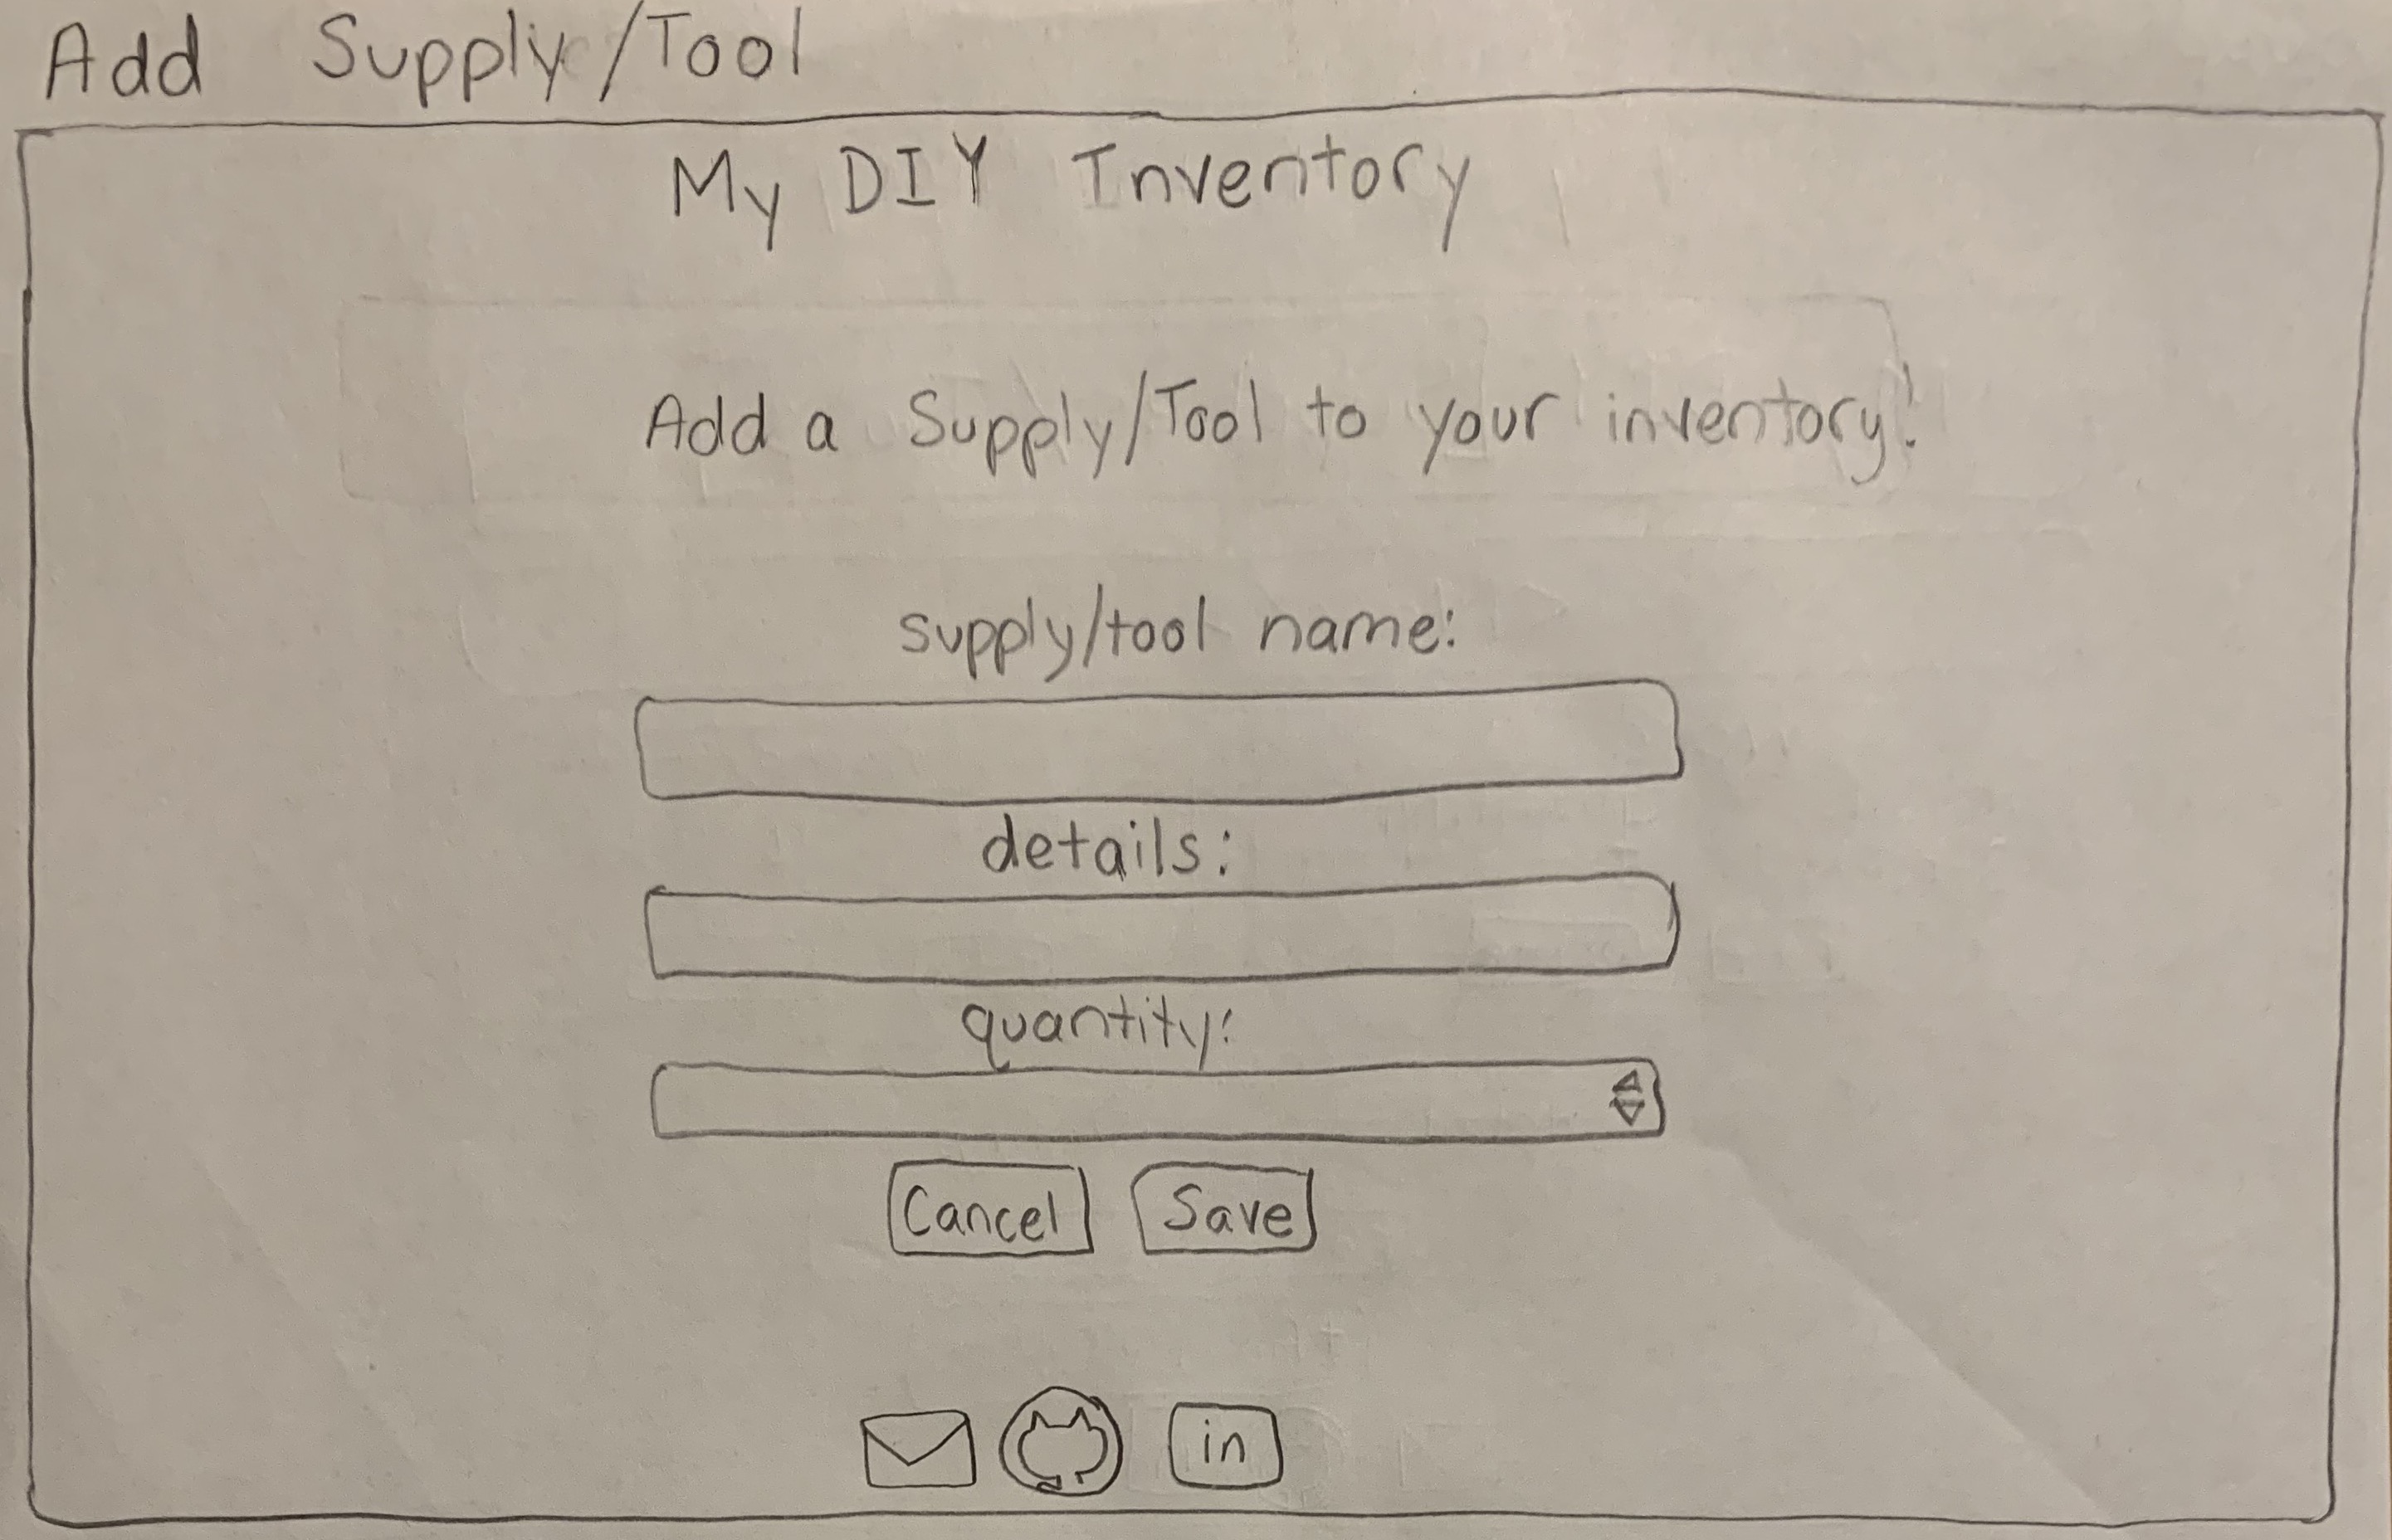 Add Supply/Tool
My DIY Inventory
Add a Supply/Tool to your inventory!
supply/tool name:
details:
quantity:
Cancel Save
in